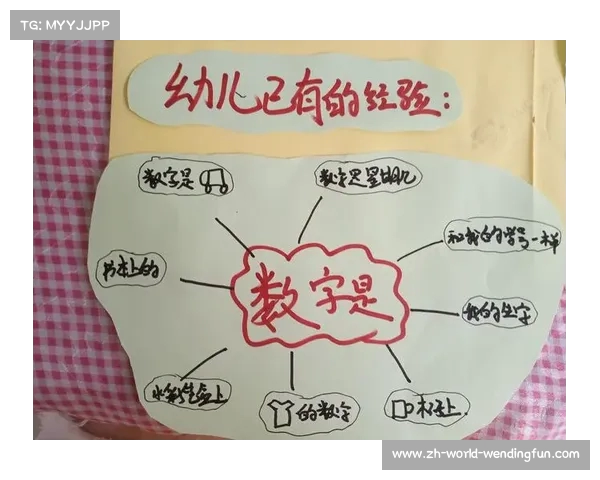 TG: MYYJJPP
幼儿已有的经验:
数字是
数字是星期几
和我的学号一样
书本上的
数字是
我的生字
的数字
杯子上
www.zh-world-wendingfun.com